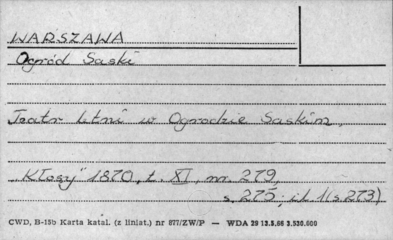 WARSZAWA
Ogród Saski
Teatr letni w Ogrodzie Saskim,
"Kłosy" 1870, t. XI, nr. 279,
s. 275; il. 1 (s. 273)
CWD, B-15b Karta katal. (z liniat.) nr 877/ZW/P — WDA 29 13.5.66 3.530.600